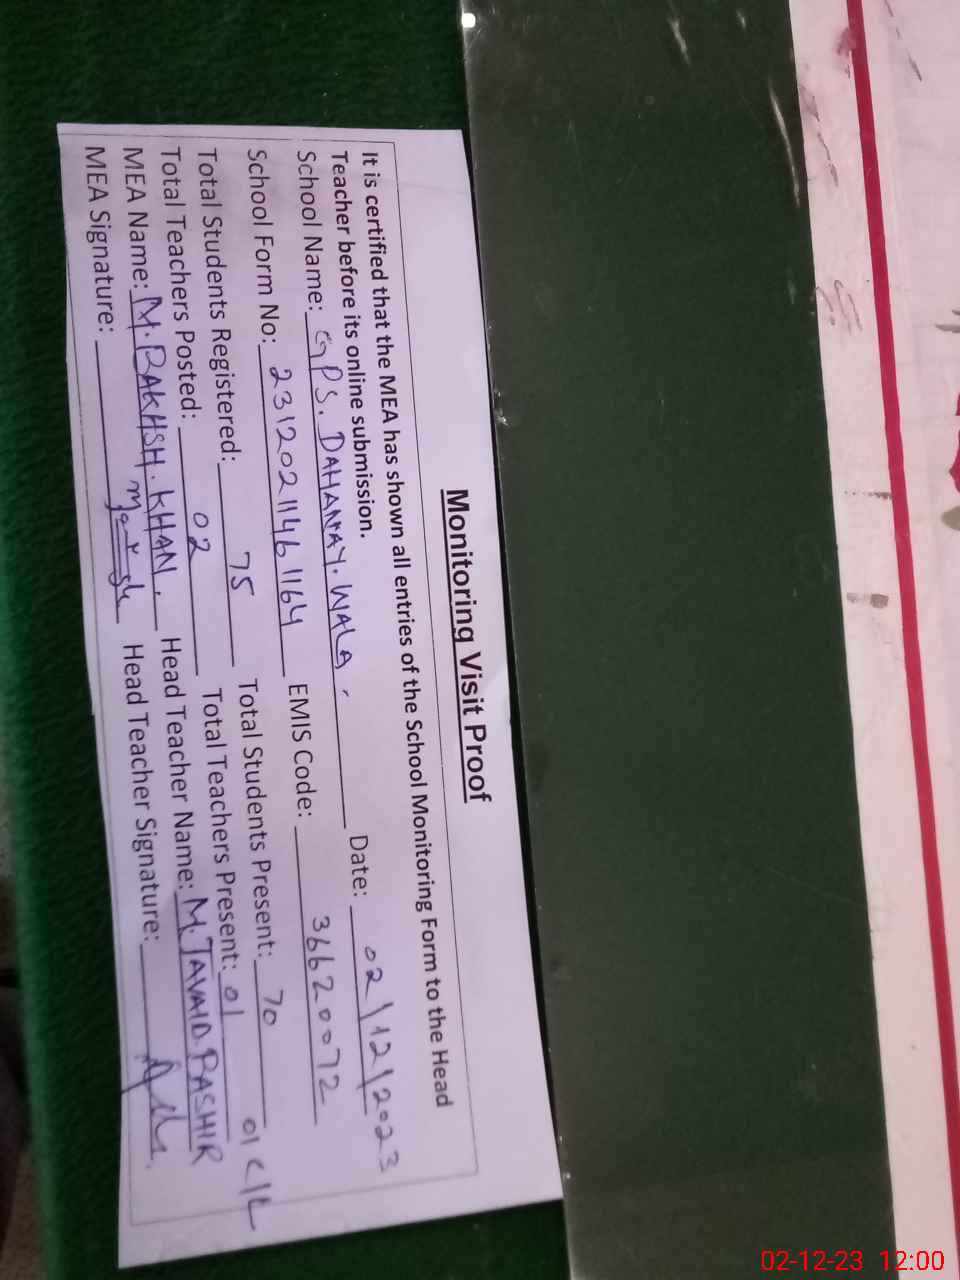 Monitoring Visit Proof
It is certified that the MEA has shown all entries of the School Monitoring Form to the Head
Teacher before its online submission.
School Name: GPS. DAHANAY. WALA. Date: 02/12/2023
School Form No: 2312021146 1164 EMIS Code: 36620072
Total Students Registered: 75 Total Students Present: 70
Total Teachers Posted: 02 Total Teachers Present: 01 01 C/L
MEA Name: M. BAKHSH. KHAN. Head Teacher Name: M. JAVAID. BASHIR
MEA Signature: Head Teacher Signature:
02-12-23 12:00